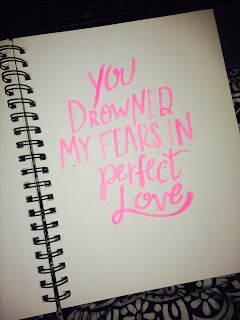 YOU
DROWNED
MY FEARS IN
perfect
Love